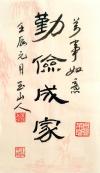 万事如意
勤俭成家
壬辰元月玉山人